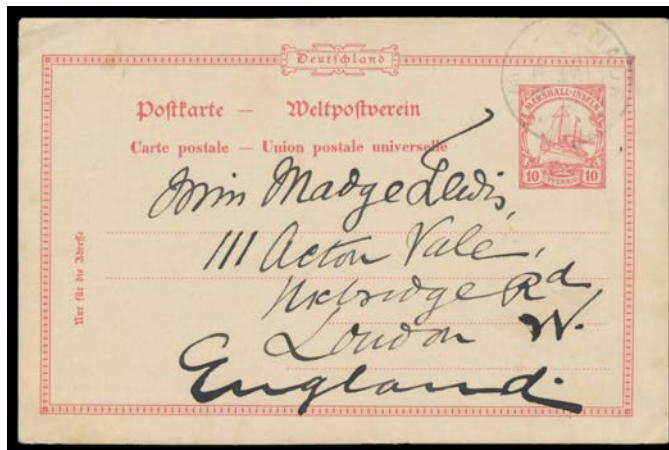 Deutschland
Postkarte — Weltpostverein
Carte postale — Union postale universelle
MARSHALL-INSELN
10 PFENNIG 10
Nur für die Adresse
Miss Madge Lewis,
111 Acton Vale,
Uxbridge Rd
London W.
England.